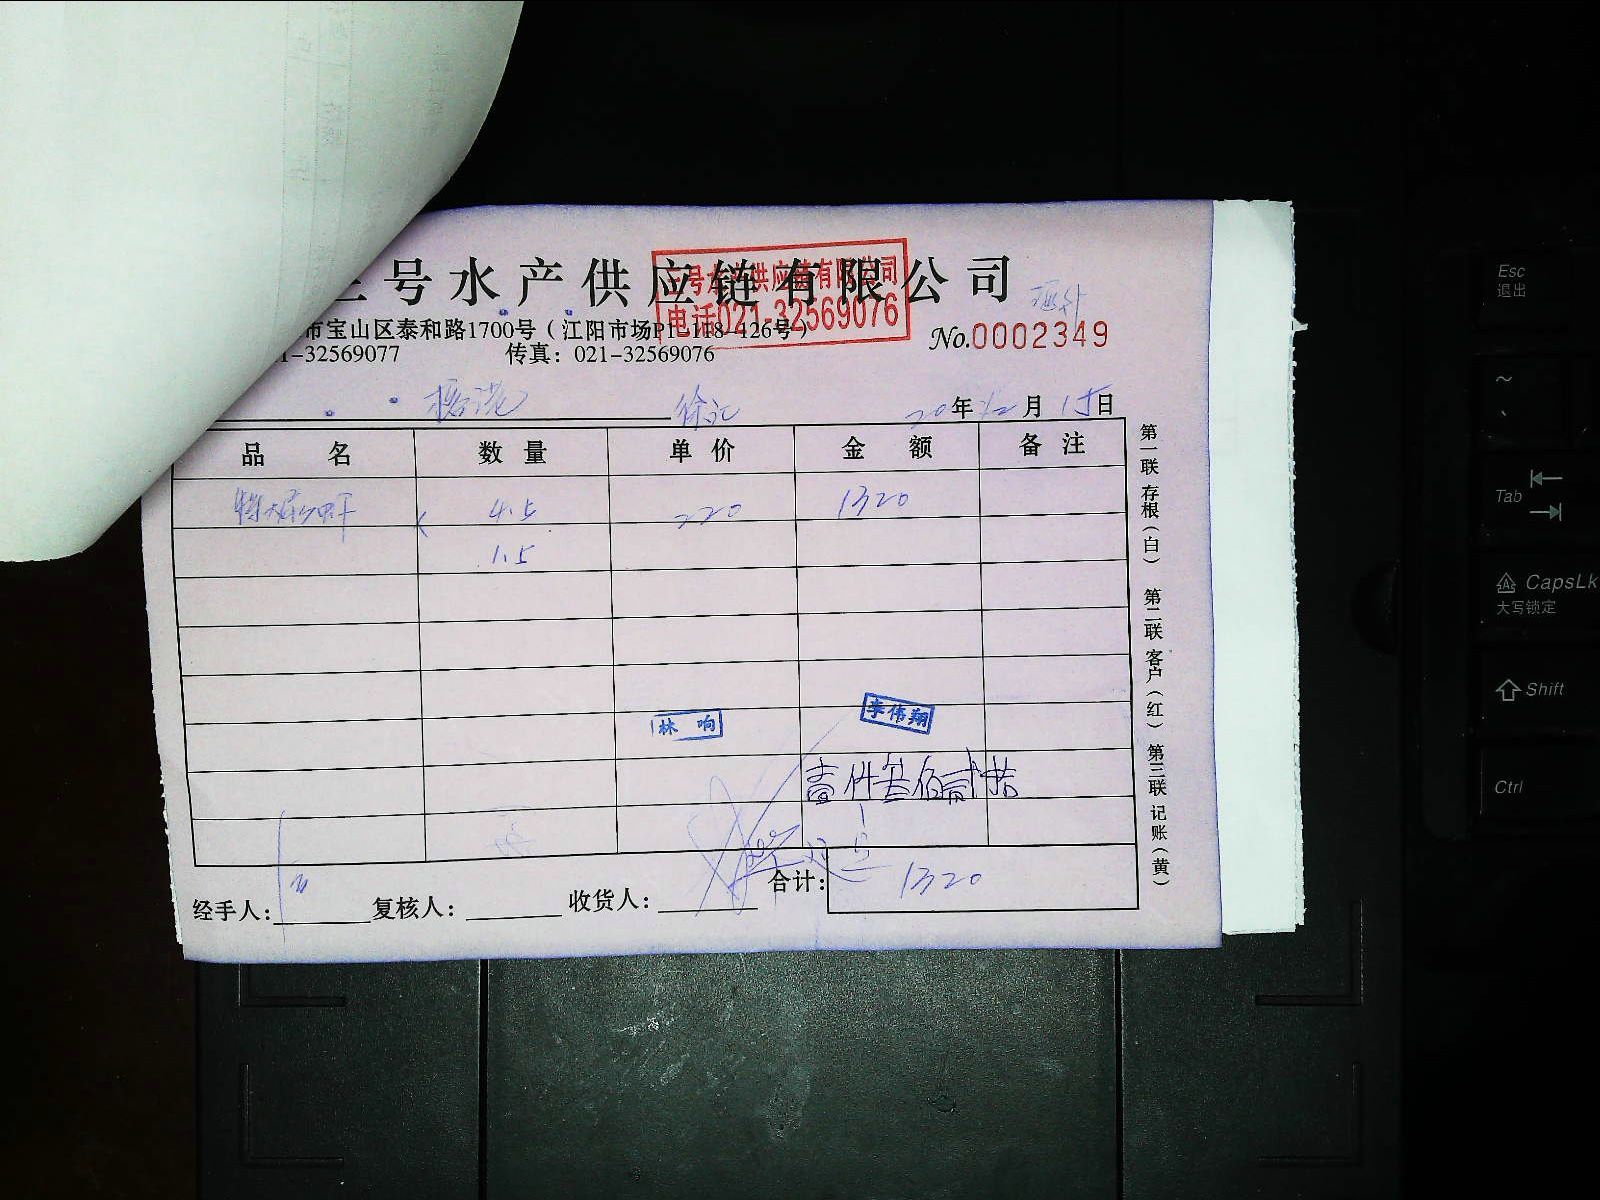 三号水产供应链有限公司
三号水产供应链有限公司
电话021-32569076
市宝山区泰和路1700号（江阳市场P1-118-126号）
1-32569077 传真：021-32569076
No.0002349
徐汇
20年12月15日
品名 数量 单价 金额 备注
特大 4.5 220 1320
1.5
林响
李伟翔
壹仟叁佰贰拾
合计： 1320
经手人： 复核人： 收货人：
第一联 存根（白） 第二联 客户（红） 第三联 记账（黄）
Esc
退出
~
Tab
CapsLk
大写锁定
Shift
Ctrl